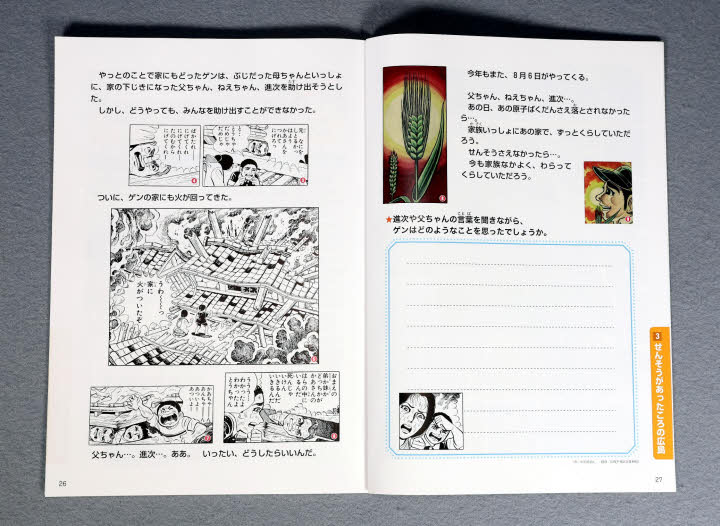 やっとのことで家にもどったゲンは、ぶじだった母ちゃんといっしょ
に、家の下じきになった父ちゃん、ねえちゃん、進次を助け出そうとし
た。
しかし、どうやっても、みんなを助け出すことができなかった。
ついに、ゲンの家にも火が回ってきた。
うわ――っ
家に
火がついたぞ
おまえの
弟か妹か
どっちかが
かあさんの
はらの中に
いるんだ
死んじゃ
いけん
いきるんだ
いきるんだ
父ちゃん…。進次…。ああ。 いったい、どうしたらいいんだ。
26
今年もまた、8月6日がやってくる。
父ちゃん、ねえちゃん、進次…。
あの日、あの原ばくだんさえ落とされなかった
ら…。
家族いっしょにあの家で、ずっとくらしていただ
ろう。
せんそうさえなかったら…。
今も家族なかよく、わらって
くらしていただろう。
★進次や父ちゃんの言葉を聞きながら、
ゲンはどのようなことを思ったでしょうか。
3 せんそうがあったころの広島
27